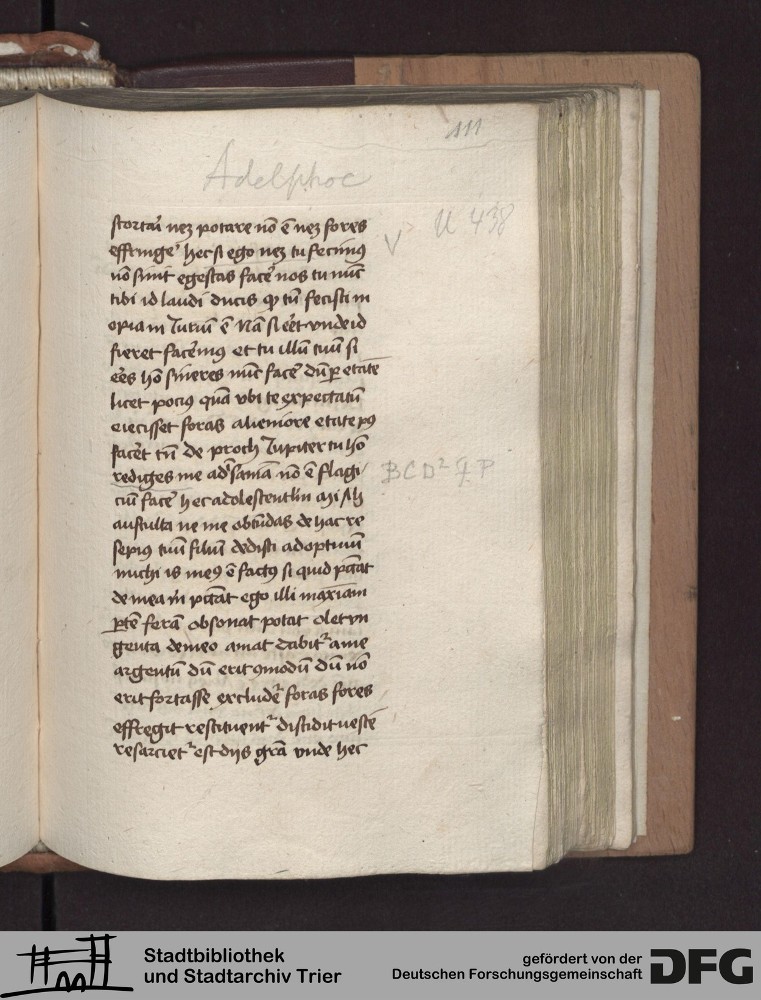 111
Adelphoe
scortari neq3 potare nō ē neq3 fores
U 438
V
effringe᾽ hec si ego neq3 tu fecimꝰ
nō sinit egestas facē nos tu nūc
tibi id laudi ducis qꝫ tū fecisti in
opia iniuriū ē Nā si eēt unde id
fieret facēmꝰ et tu illū tuū si
eēs hō sineres nūc facē dū ꝑ etatē
licet pociꝰ quā ubi te expectatū
eiecisset foras alieniore etate pꝰ
facēt tn̄ de proch Iupiter tu hō
rediges me ad īsaniā nō ē flagi
BCD² P
ciū facē hec adolescentlm mi Ah
ausculta ne me obtūdas de hac re
sepiꝰ tuū filiū dedisti adoptiuū
michi is meꝰ ē factꝰ si quid pccat
de mea mi pccat ego illi maxīam
ꝑtē ferā obsonat potat olet un
genta de meo amat dabit᷑ a me
argentū dū erit ꝯmodū dū nō
erit fortasse excludet᷑ foras fores
effregit restituent᷑ discidit uestē
resarciet᷑ est dijs grā unde hec
Stadtbibliothek
und Stadtarchiv Trier
gefördert von der
Deutschen Forschungsgemeinschaft
DFG